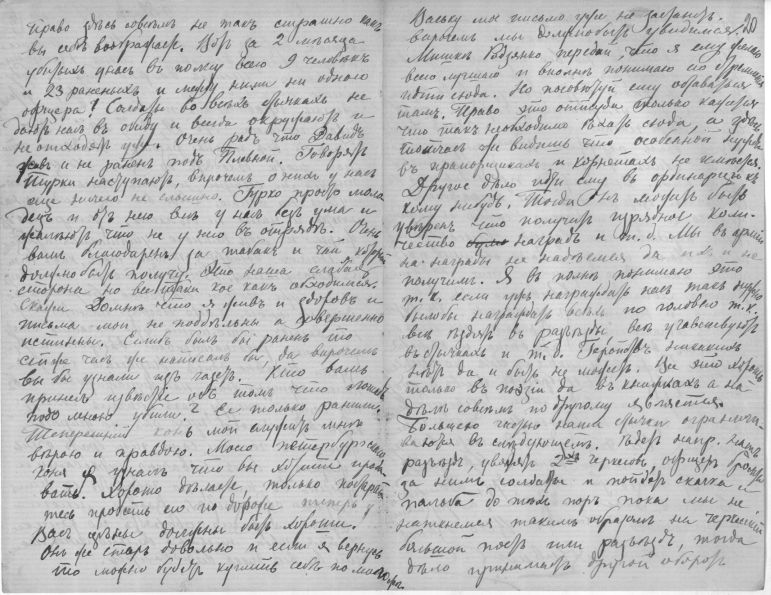 право здѣсь совсѣмъ не такъ страшно какъ
вы себѣ воображаете. Вотъ за 2 мѣсяца
убитыхъ у насъ въ полку всего 9 человѣкъ
и 23 раненыхъ и между ними ни одного
офицера! Солдаты во всѣхъ стычкахъ не
даютъ насъ въ обиду и всегда окружаютъ и
не отходятъ уже. Очень радъ что Давидъ
живъ и не раненъ подъ Плевной. Говорятъ
Турки наступаютъ, впрочемъ о нихъ у насъ
еще ничего не слышно. Гурко просто моло
децъ и отъ него всѣ у насъ безъ ума и
жалѣютъ что не у него въ отрядѣ. Очень
вамъ благодаренъ за табакъ и чай который
должно быть получу. Это наша слабая
сторона но все таки кое какъ обходимся.
Скажи что я живъ и здоровъ и
письма мои не поддѣльны а совершенно
истинны. Если бы былъ раненъ то
сейчасъ же написалъ бы, да впрочемъ
вы бы узнали изъ газетъ. Кто вамъ
принесъ извѣстіе объ томъ что лошадь
подо мною убили? Ее только ранили.
Теперешній конь мой служитъ мнѣ
вѣрою и правдою. Моего петербургскаго
коня я узналъ что вы хотите прода
вать. Хорошо дѣлаете, только постарай
тесь продать его по дороже теперь у
Васъ цѣны должны быть хороши.
Онъ же старъ довольно и если я вернусь
то можно будетъ купить себѣ по моложе
20
Ваську мое письмо уже не застанетъ.
впрочемъ мы должно быть увидимся.
Мишкѣ Родзянко передай, что я ему желаю
всего лучшаго и вполнѣ понимаю его стремленія
идти сюда. Но посовѣтуй ему оставаться
тамъ. Право это оттуда только кажется
что такъ необходимо ѣхать сюда, а здѣсь
тотчасъ же видишь что особенной нужды
въ прапорщикахъ и корнетахъ не имѣется.
Другое дѣло идти ему въ ординарцы къ
кому нибудь. Тогда онъ можетъ быть
увѣренъ что получитъ изрядное коли
чество наградъ и т. д. Мы въ арміи
на награды не надѣемся да ихъ и не
получимъ. Я въ полнѣ понимаю это
т. к. если ужъ награждать насъ такъ нужно
было бы награждать всѣхъ по головно т. к.
всѣ ѣздятъ въ разъѣзды, всѣ участвуютъ
въ стычкахъ и т. д. Героевъ никакихъ
нѣтъ да и быть не можетъ. Все это хорошо
только въ поэзіи да въ книжкахъ а на
дѣлѣ совсѣмъ по другому является.
Большею частью наши стычки ограничи
ваются въ слѣдующемъ. Ѣдетъ напр. нашъ
разъѣздъ, увидятъ 2хъ черкесовъ, офицеръ
за нимъ солдаты и пойдетъ скачка и
пальба до тѣхъ поръ пока мы не
наткнемся такимъ образомъ на черкесскій
большой постъ или разъѣздъ, тогда
дѣло принимаетъ другой оборотъ